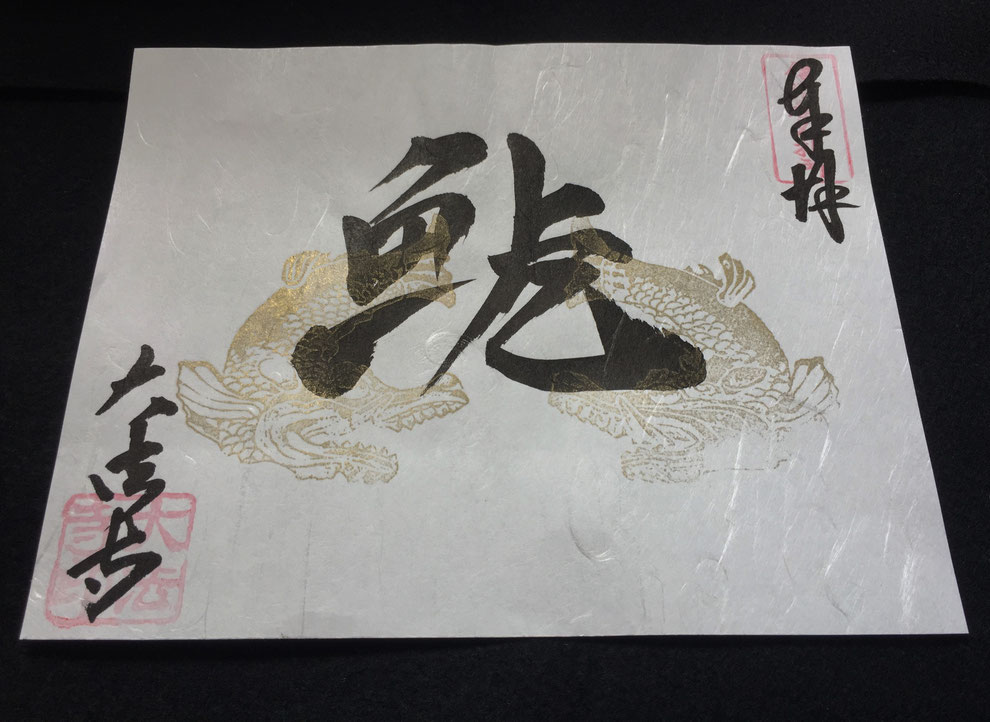 奉拝
鯱
大法寺
大法
寺印